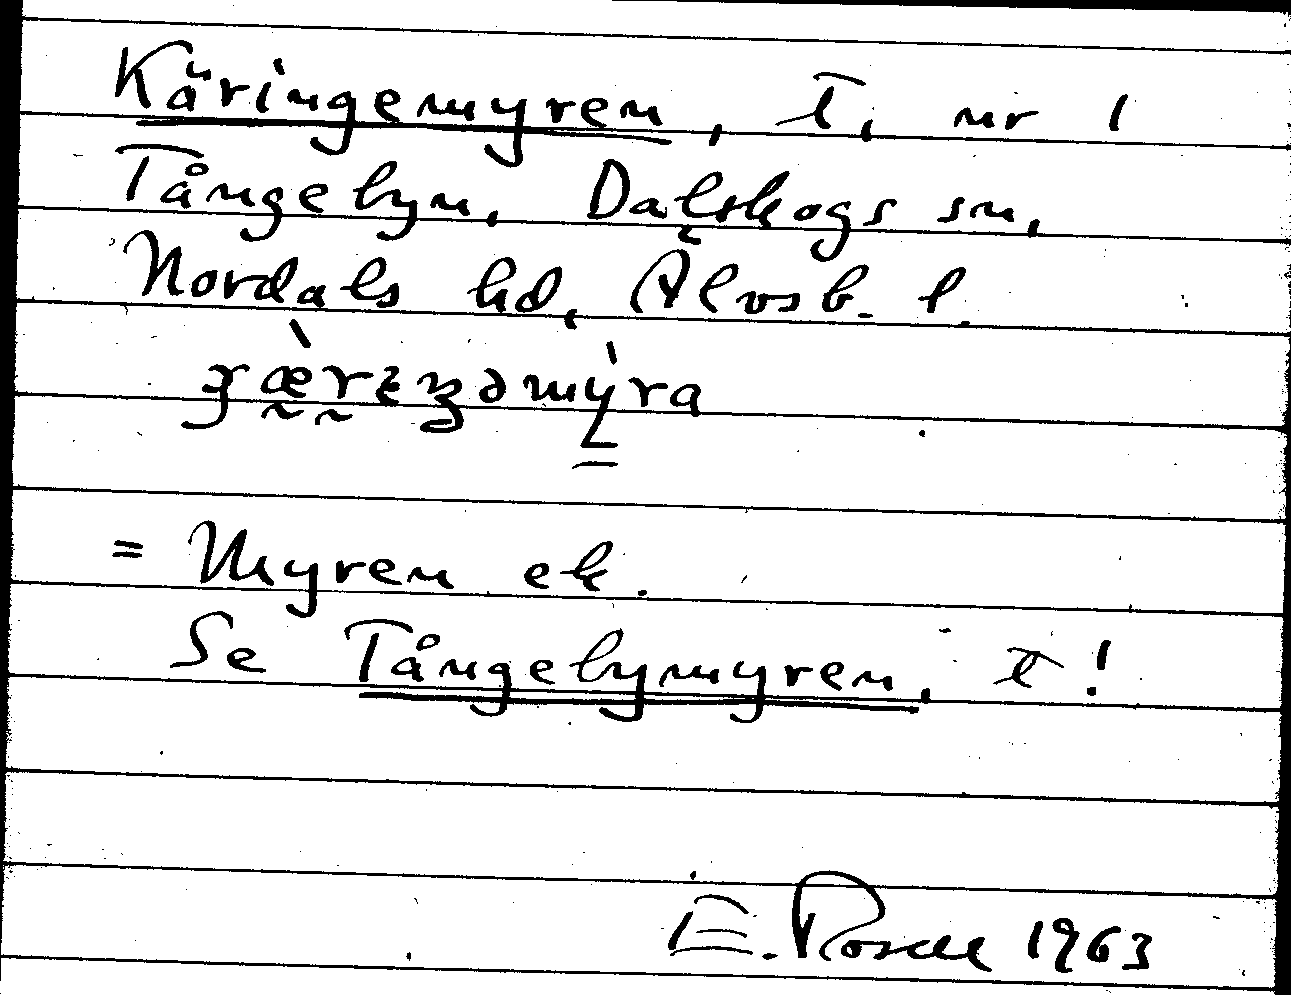 Käringemyren, T, nr 1
Tångebyn, Dalskogs sn,
Nordals hd, Älvsb. l.
= Myren ek.
Se Tångebymyren, t!
E. Rosell 1963